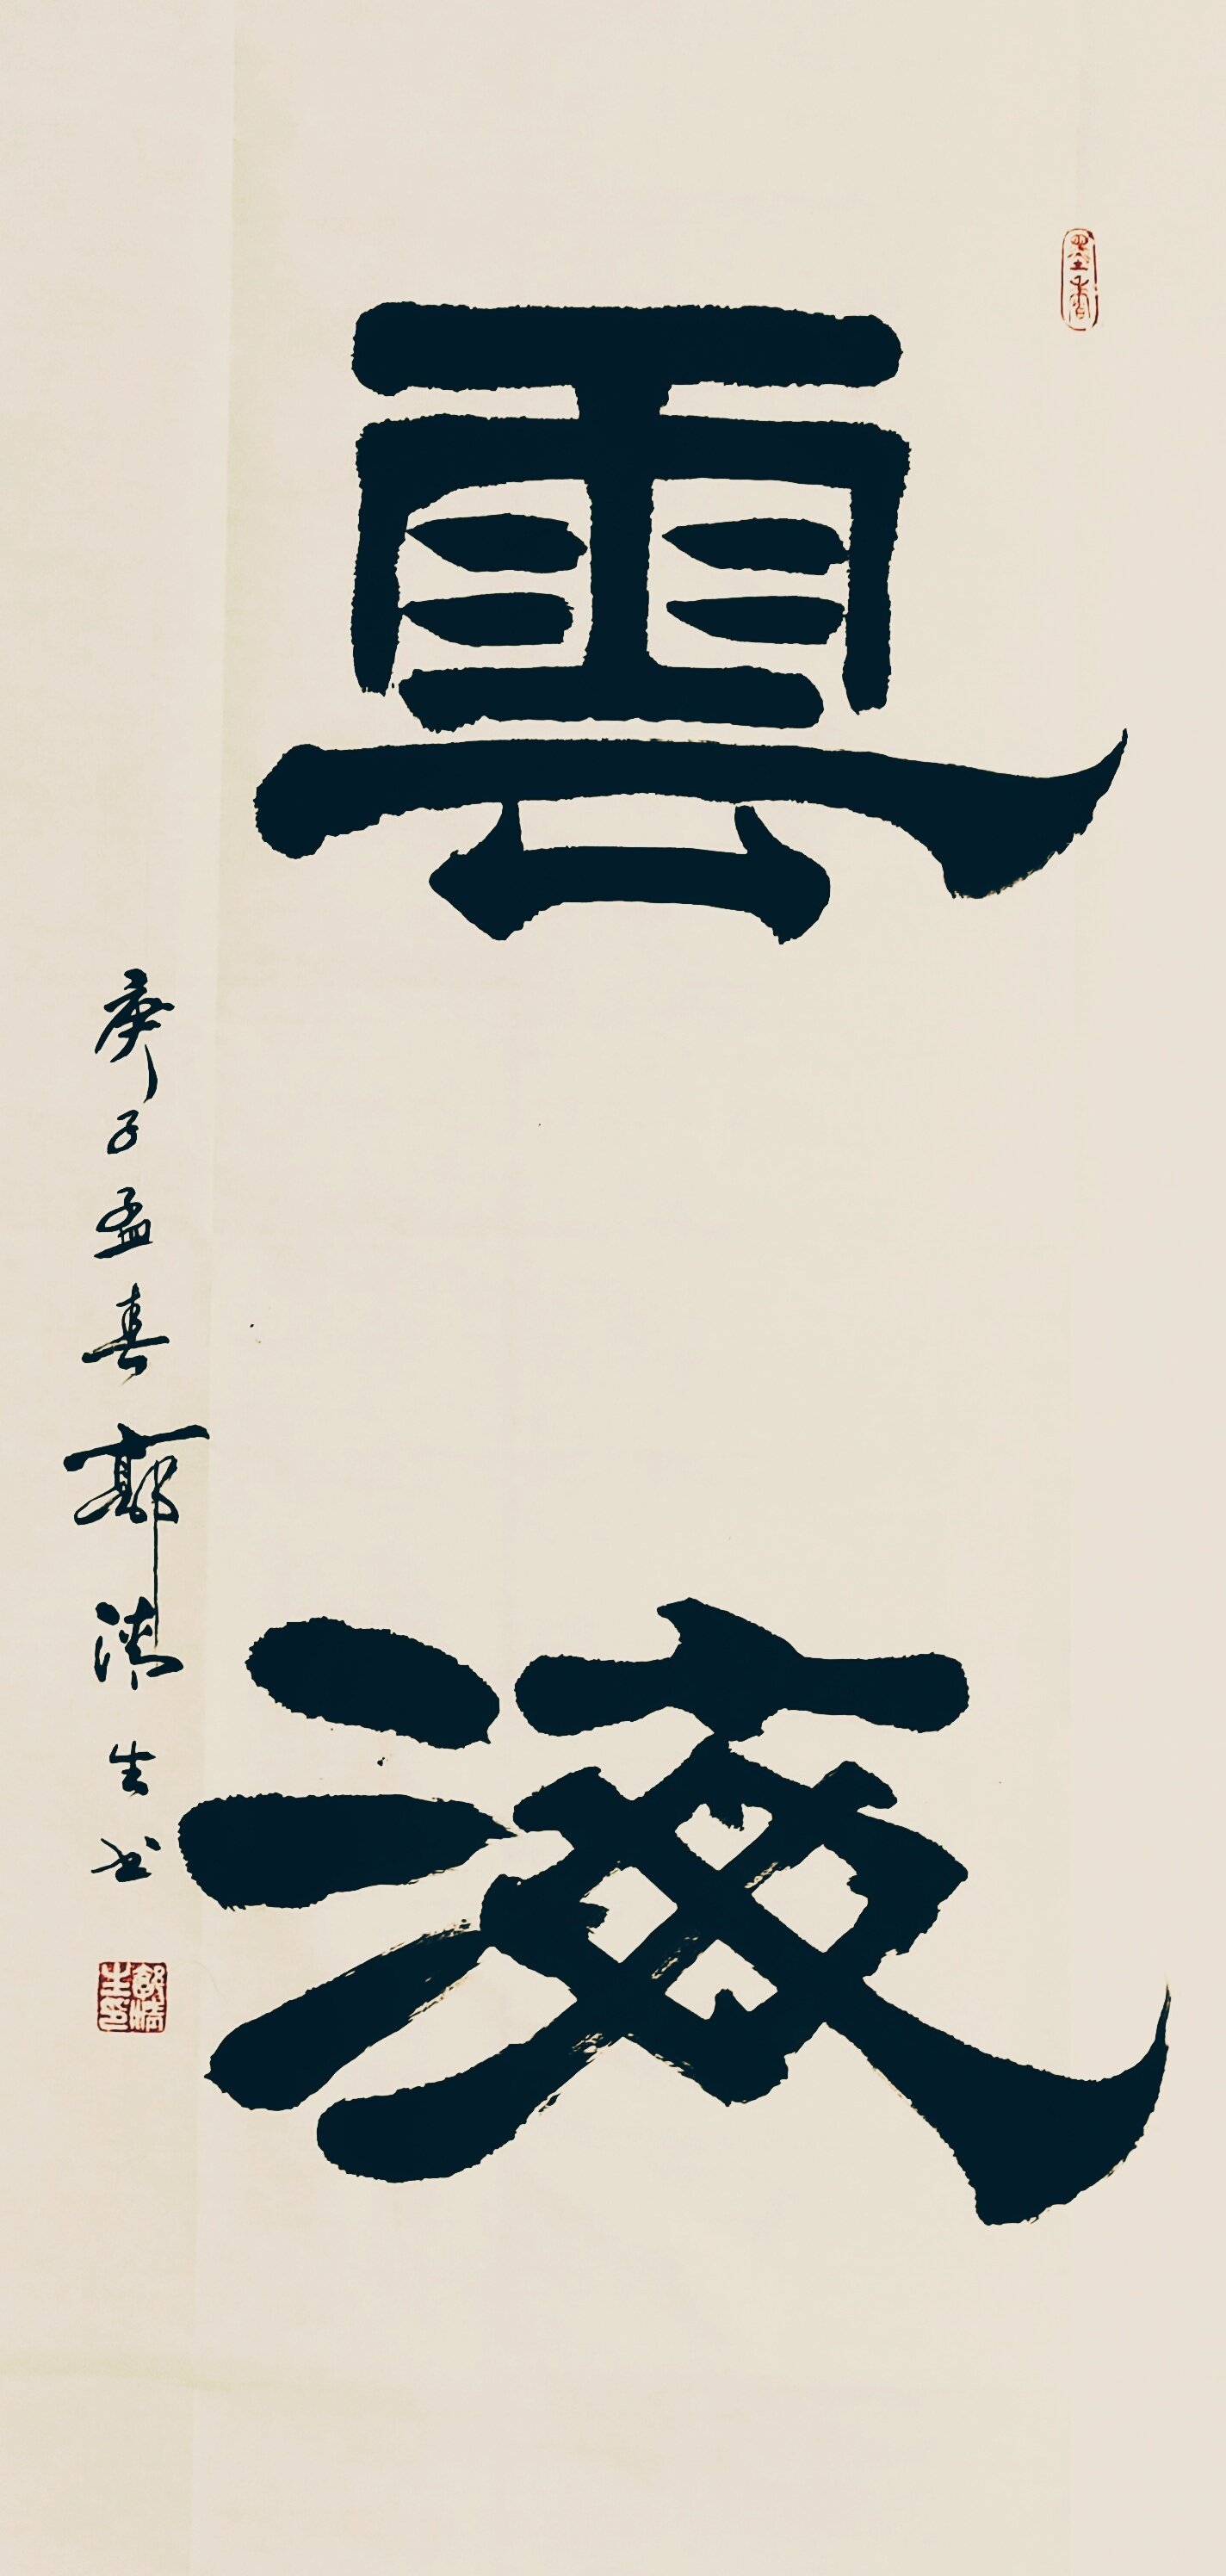 墨香
雲海
庚子孟春郭清生书
郭清生印